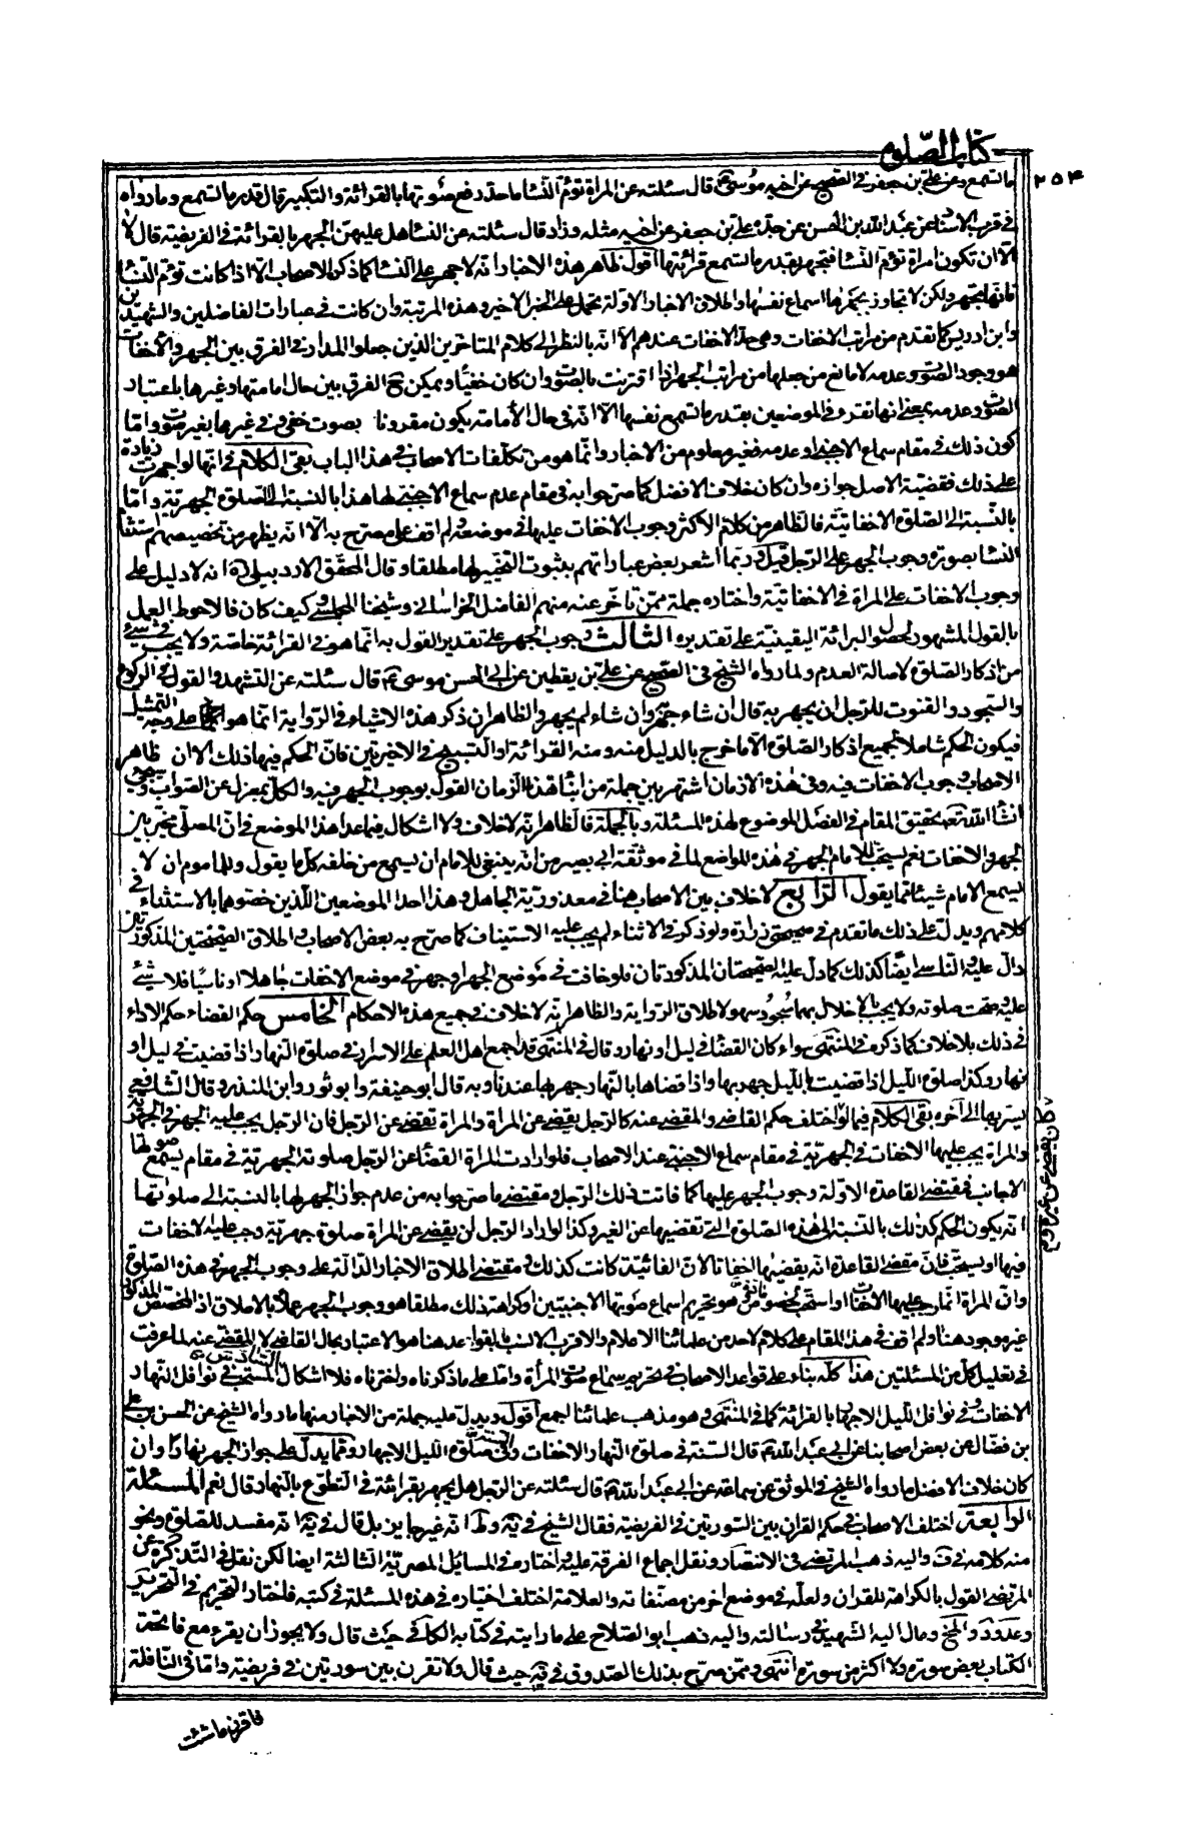 كتاب الصلوة
٢٥٤
ما تسمع وعن علي بن جعفر في الصحيح عن اخيه موسى ع قال سئلته عن المراة تؤم النسا ما حد رفع صوتها بالقرائة والتكبير قال قدر ما تسمع وما رواه
في قرب الاسناد عن عبد الله بن الحسن عن جده علي بن جعفر عن اخيه مثله وزاد قال سئلته عن النسا هل عليهن الجهر بالقرائة في الفريضة قال لا
الا ان تكون امراة تؤم النسا فتجهر بقدر ما تسمع قرائتها اقول ظاهر هذه الاخبار انه لا جهر على النسا كما ذكره الاصحاب الا اذا كانت تؤم النسا
فانها تجهر ولكن لا تجاوز بجهرها اسماع نفسها واطلاق الاخبار الاولة تحمل على الخبر الاخير وهذه المرتبة وان كانت في عبارات الفاضلين والشهيدين
وابن ادريس كما تقدم من مراتب الاخفات وهي حد الاخفات عندهم الا انه بالنظر الى كلام المتاخرين الذين جعلوا المدار في الفرق بين الجهر والاخفات
هو وجود الصوت وعدمه لا مانع من جعلها من مراتب الجهر اذا اقترنت بالصوت وان كان خفيا ويمكن ح الفرق بين حال امامتها وغيرها باعتبار
الصوت وعدمه بمعنى انها تقرء في الموضعين بقدر ما تسمع نفسها الا انه في حال الامامة يكون مقرونا بصوت خفي وفي غيرها بغير صوت واما
كون ذلك في مقام سماع الاجنبي او عدمه فغير معلوم من الاخبار وانما هو من تكلفات الاصحاب في هذا الباب بقي الكلام في انها لو اجهرت زيادة
على ذلك فقضية الاصل جوازه وان كان خلاف الافضل كما صرحوا به في مقام عدم سماع الاجنبي لها هذا بالنسبة الى الصلوة الجهرية واما
بالنسبة الى الصلوة الاخفاتية فالظاهر من كلام الاكثر وجوب الاخفات عليها في موضعه ولم اقف على مصرح به الا انه يظهر من تخصيصهم استثناء
النسا بصورة وجوب الجهر على الرجل قيل وربما اشعر بعض عباراتهم بثبوت التخيير لها مطلقا وقال المحقق الاردبيلي ره انه لا دليل على
وجوب الاخفات على المراة في الاخفاتية واختاره جملة ممن تاخر عنه منهم الفاضل الخراساني وشيخنا المجلسي وكيف كان فالاحوط العمل
بالقول المشهور لحصول البرائة اليقينية على تقديره الثالث وجوب الجهر على تقدير القول به انما هو في القرائة خاصة ولا يجب في شئ
من اذكار الصلوة لاصالة العدم ولما رواه الشيخ في الصحيح عن علي بن يقطين عن ابي الحسن موسى ع قال سئلته عن التشهد والقول في الركوع
والسجود والقنوت للرجل ان يجهر به قال ان شاء جهر وان شاء لم يجهر والظاهر ان ذكر هذه الاشياء في الرواية انما هو على وجه التمثيل
فيكون الحكم شاملا لجميع اذكار الصلوة الا ما خرج بالدليل منه ومنه القرائة او التسبيح في الاخيرتين فان الحكم فيها ذلك الا ان ظاهر
الاصحاب وجوب الاخفات فيه وفي هذه الازمان اشتهر بين جملة من ابناء هذا الزمان القول بوجوب الجهر فيه والكل بمعزل عن الصواب وسيجئ
انشا الله تع تحقيق المقام في الفصل الموضوع لهذه المسئلة وبالجملة فالظاهر انه لا خلاف ولا اشكال فيما عدا هذا الموضع في ان المصلي مخير بين
الجهر والاخفات نعم يستحب للامام الجهر في هذه المواضع لما في موثقة ابي بصير من انه ينبغي للامام ان يسمع من خلفه كل ما يقول وللماموم ان لا
يسمع الامام شيئا مما يقول الرابع لا خلاف بين الاصحاب هنا في معذورية الجاهل وهذا احد الموضعين اللذين خصوهما بالاستثناء في
كلامهم ويدل على ذلك ما تقدم في صحيحتي زرارة ولو ذكر في الاثناء لم يجب عليه الاستيناف كما صرح به بعض الاصحاب واطلاق الصحيحتين المذكورتين
دال عليه والناسي ايضا كذلك كما دل عليه الصحيحتان المذكورتان فلو خافت في موضع الجهر او جهر في موضع الاخفات جاهلا او ناسيا فلا شئ
عليه وصحت صلوته ولا يجب بالاخلال بهما سجود سهو لاطلاق الرواية والظاهر انه لا خلاف في جميع هذه الاحكام الخامس حكم القضاء حكم الاداء
في ذلك بلا خلاف كما ذكره في المنتهى سواء كان القضا في ليل او نهار وقال في المنتهى قد اجمع اهل العلم على الاسرار في صلوة النهار اذا قضيت في ليل او
نهار وكذا صلوة الليل اذا قضيت بالليل جهر بها واذا قضاها بالنهار جهر بها عندنا وبه قال ابو حنيفة وابو ثور وابن المنذر وقال الشافعي
يسر بها الى آخره بقي الكلام فيما لو اختلف حكم القاضي والمقضي عنه كالرجل يقضي عن المراة والمراة تقضي عن الرجل فان الرجل يجب عليه الجهر في الجهرية
والمراة يجب عليها الاخفات في الجهرية في مقام سماع الاجنبي عند الاصحاب فلو ارادت المراة القضا عن الرجل صلوته الجهرية في مقام يسمع صوتها
الاجانب فمقتضى القاعدة الاولة وجوب الجهر عليها كما فاتت ذلك الرجل ومقتضى ما صرحوا به من عدم جواز الجهر لها بالنسبة الى صلوتها
انه يكون الحكم كذلك بالنسبة الى هذه الصلوة التي تقضيها عن الغير وكذا لو اراد الرجل ان يقضي عن المراة صلوة جهرية وجب عليها الاخفات
فيها او يستحب فان مقتضى القاعدة انه يقضيها اخفاتا لان الفائتة كانت كذلك ومقتضى اطلاق الاخبار الدالة على وجوب الجهر في هذه الصلوة
وان المراة انما وجب عليها الاخفات او استحب لخصوص مانع هو تحريم اسماع صوتها الاجنبي او كراهة ذلك مطلقا هو وجوب الجهر عملا بالاطلاق اذ المخصص المذكور
غير موجود هنا ولم اقف في هذا المقام على كلام لاحد من علمائنا الاعلام والاقرب الانسب بالقواعد هنا هو الاعتبار بحال القاضي لا المقضي عنه لما عرفت
في تعليل كل من المسئلتين هذا كله بناء على قواعد الاصحاب في تحريم سماع صوت المرأة واما على ما ذكرناه واخترناه فلا اشكال السادس المستحب في نوافل النهار
الاخفات وفي نوافل الليل الاجهار بالقرائة كما في المنتهى وهو مذهب علمائنا اجمع اقول ويدل عليه جملة من الاخبار منها ما رواه الشيخ عن الحسن بن علي
بن فضال عن بعض اصحابنا عن ابي عبد الله ع قال السنة في صلوة النهار الاخفات والسنة في صلوة الليل الاجهار ومما يدل على جواز الجهر نهارا وان
كان خلاف الافضل ما رواه الشيخ في الموثق عن سماعة عن ابي عبد الله ع قال سئلته عن الرجل هل يجهر بقرائته في التطوع بالنهار قال نعم المسئلة
الرابعة اختلف الاصحاب في حكم القران بين السورتين في الفريضة فقال الشيخ في ية وط انه غير جايز بل قال في ية انه مفسد للصلوة ونحو
منه كلامه في ف واليه ذهب المرتضى في الانتصار ونقل اجماع الفرقة عليه واختاره في المسايل المصرية الثالثة ايضا لكن نقل في التذكرة عن
المرتضى القول بالكراهة للقران ولعله في موضع اخر من مصنفاته والعلامة اختلف اختياره في هذه المسئلة في كتبه فاختار التحريم في التحرير
وعد ود والمخ ومال اليه الشهيد في رسالته واليه ذهب ابو الصلاح على ما رايته في كتابه الكافي حيث قال ولا يجوز ان يقرء مع فاتحة
الكتاب بعض سورة ولا اكثر من سورة انتهى وممن صرح بذلك الصدوق في يه حيث قال ولا تقرن بين سورتين في فريضة واما في النافلة
فاقرن ما شئت